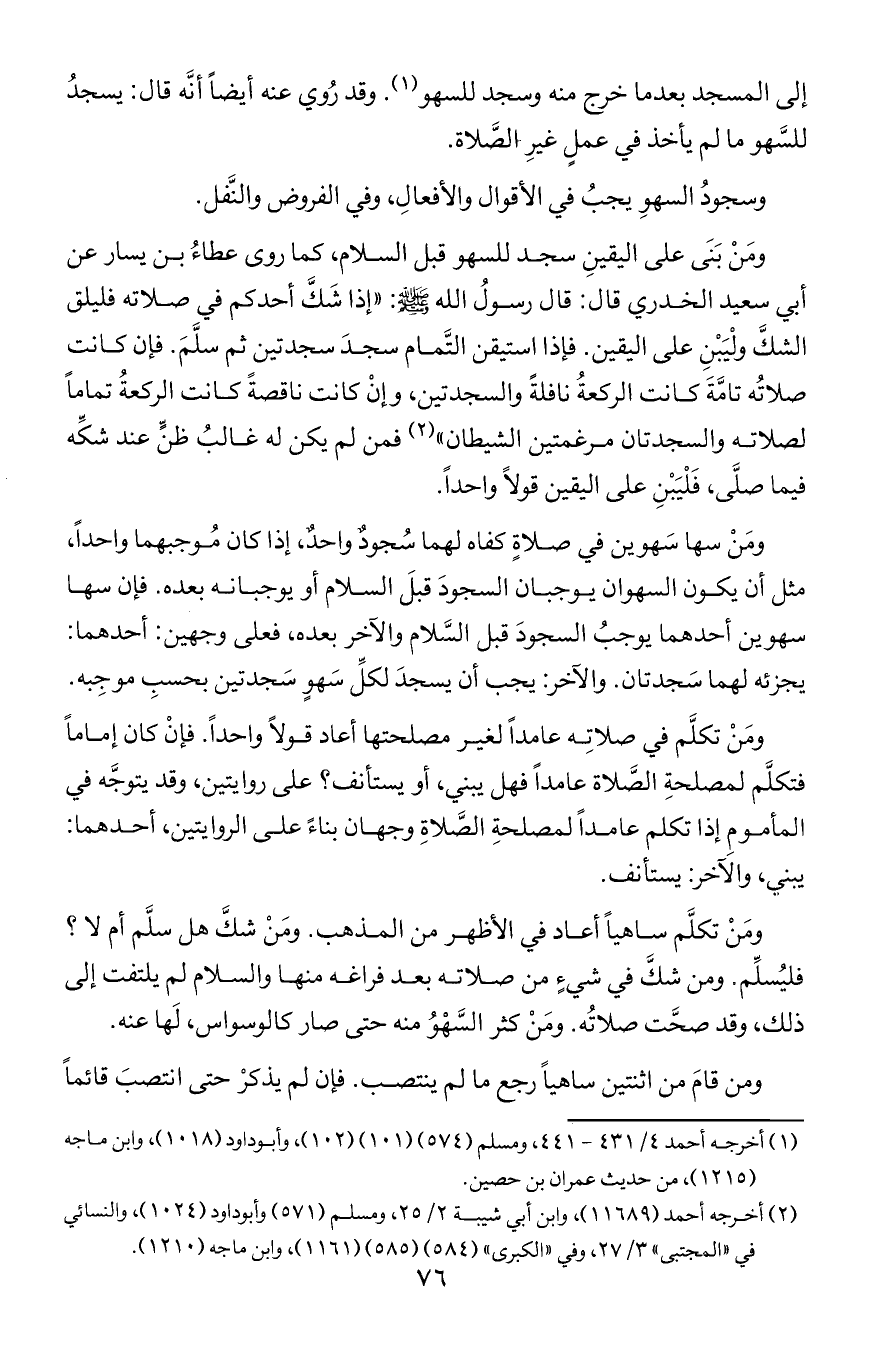 إلى المسجد بعدما خرج منه وسجد للسهو(١). وقد رُوي عنه أيضاً أنَّه قال: يسجدُ
للسَّهو ما لم يأخذ في عملٍ غيرِ الصَّلاة.
وسجودُ السهوِ يجبُ في الأقوال والأفعالِ، وفي الفروض والنَّفل.
ومَنْ بَنَى على اليقينِ سجد للسهو قبل السلام، كما روى عطاءُ بن يسار عن
أبي سعيد الخدري قال: قال رسولُ الله ﷺ: «إذا شَكَّ أحدكم في صلاته فليلق
الشكَّ ولْيَبْنِ على اليقين. فإذا استيقن التَّمام سجدَ سجدتين ثم سلَّمَ. فإن كانت
صلاتُه تامَّةً كانت الركعةُ نافلةً والسجدتين، وإنْ كانت ناقصةً كانت الركعةُ تماماً
لصلاته والسجدتان مرغمتين الشيطان»(٢) فمن لم يكن له غالبُ ظنٍّ عند شكِّه
فيما صلَّى، فَلْيَبْنِ على اليقين قولاً واحداً.
ومَنْ سها سَهوين في صلاةٍ كفاه لهما سُجودٌ واحدٌ، إذا كان مُوجبهما واحداً،
مثل أن يكون السهوان يوجبان السجودَ قبلَ السلام أو يوجبانه بعده. فإن سها
سهوين أحدهما يوجبُ السجودَ قبل السَّلام والآخر بعده، فعلى وجهين: أحدهما:
يجزئه لهما سَجدتان. والآخر: يجب أن يسجدَ لكلِّ سَهوٍ سَجدتين بحسبِ موجِبه.
ومَنْ تكلَّم في صلاتِه عامداً لغير مصلحتها أعاد قولاً واحداً. فإنْ كان إماماً
فتكلَّم لمصلحةِ الصَّلاة عامداً فهل يبني، أو يستأنف؟ على روايتين، وقد يتوجَّه في
المأموم إذا تكلم عامداً لمصلحةِ الصَّلاةِ وجهان بناءً على الروايتين، أحدهما:
يبني، والآخر: يستأنف.
ومَنْ تكلَّم ساهياً أعاد في الأظهر من المذهب. ومَنْ شكَّ هل سلَّم أم لا ؟
فليُسلِّم. ومن شكَّ في شيءٍ من صلاته بعد فراغه منها والسلام لم يلتفت إلى
ذلك، وقد صحَّت صلاتُه. ومَنْ كثر السَّهْوُ منه حتى صار كالوسواس، لَها عنه.
ومن قامَ من اثنتين ساهياً رجع ما لم ينتصب. فإن لم يذكرْ حتى انتصبَ قائماً
(١) أخرجه أحمد ٤/ ٤٣١ - ٤٤١، ومسلم (٥٧٤) (١٠١) (١٠٢)، وأبوداود (١٠١٨)، وابن ماجه
(١٢١٥)، من حديث عمران بن حصين.
(٢) أخرجه أحمد (١١٦٨٩)، وابن أبي شيبة ٢/ ٢٥، ومسلم (٥٧١) وأبوداود (١٠٢٤)، والنسائي
في «المجتبى» ٣/ ٢٧، وفي «الكبرى» (٥٨٤) (٥٨٥) (١١٦١)، وابن ماجه (١٢١٠).
٧٦